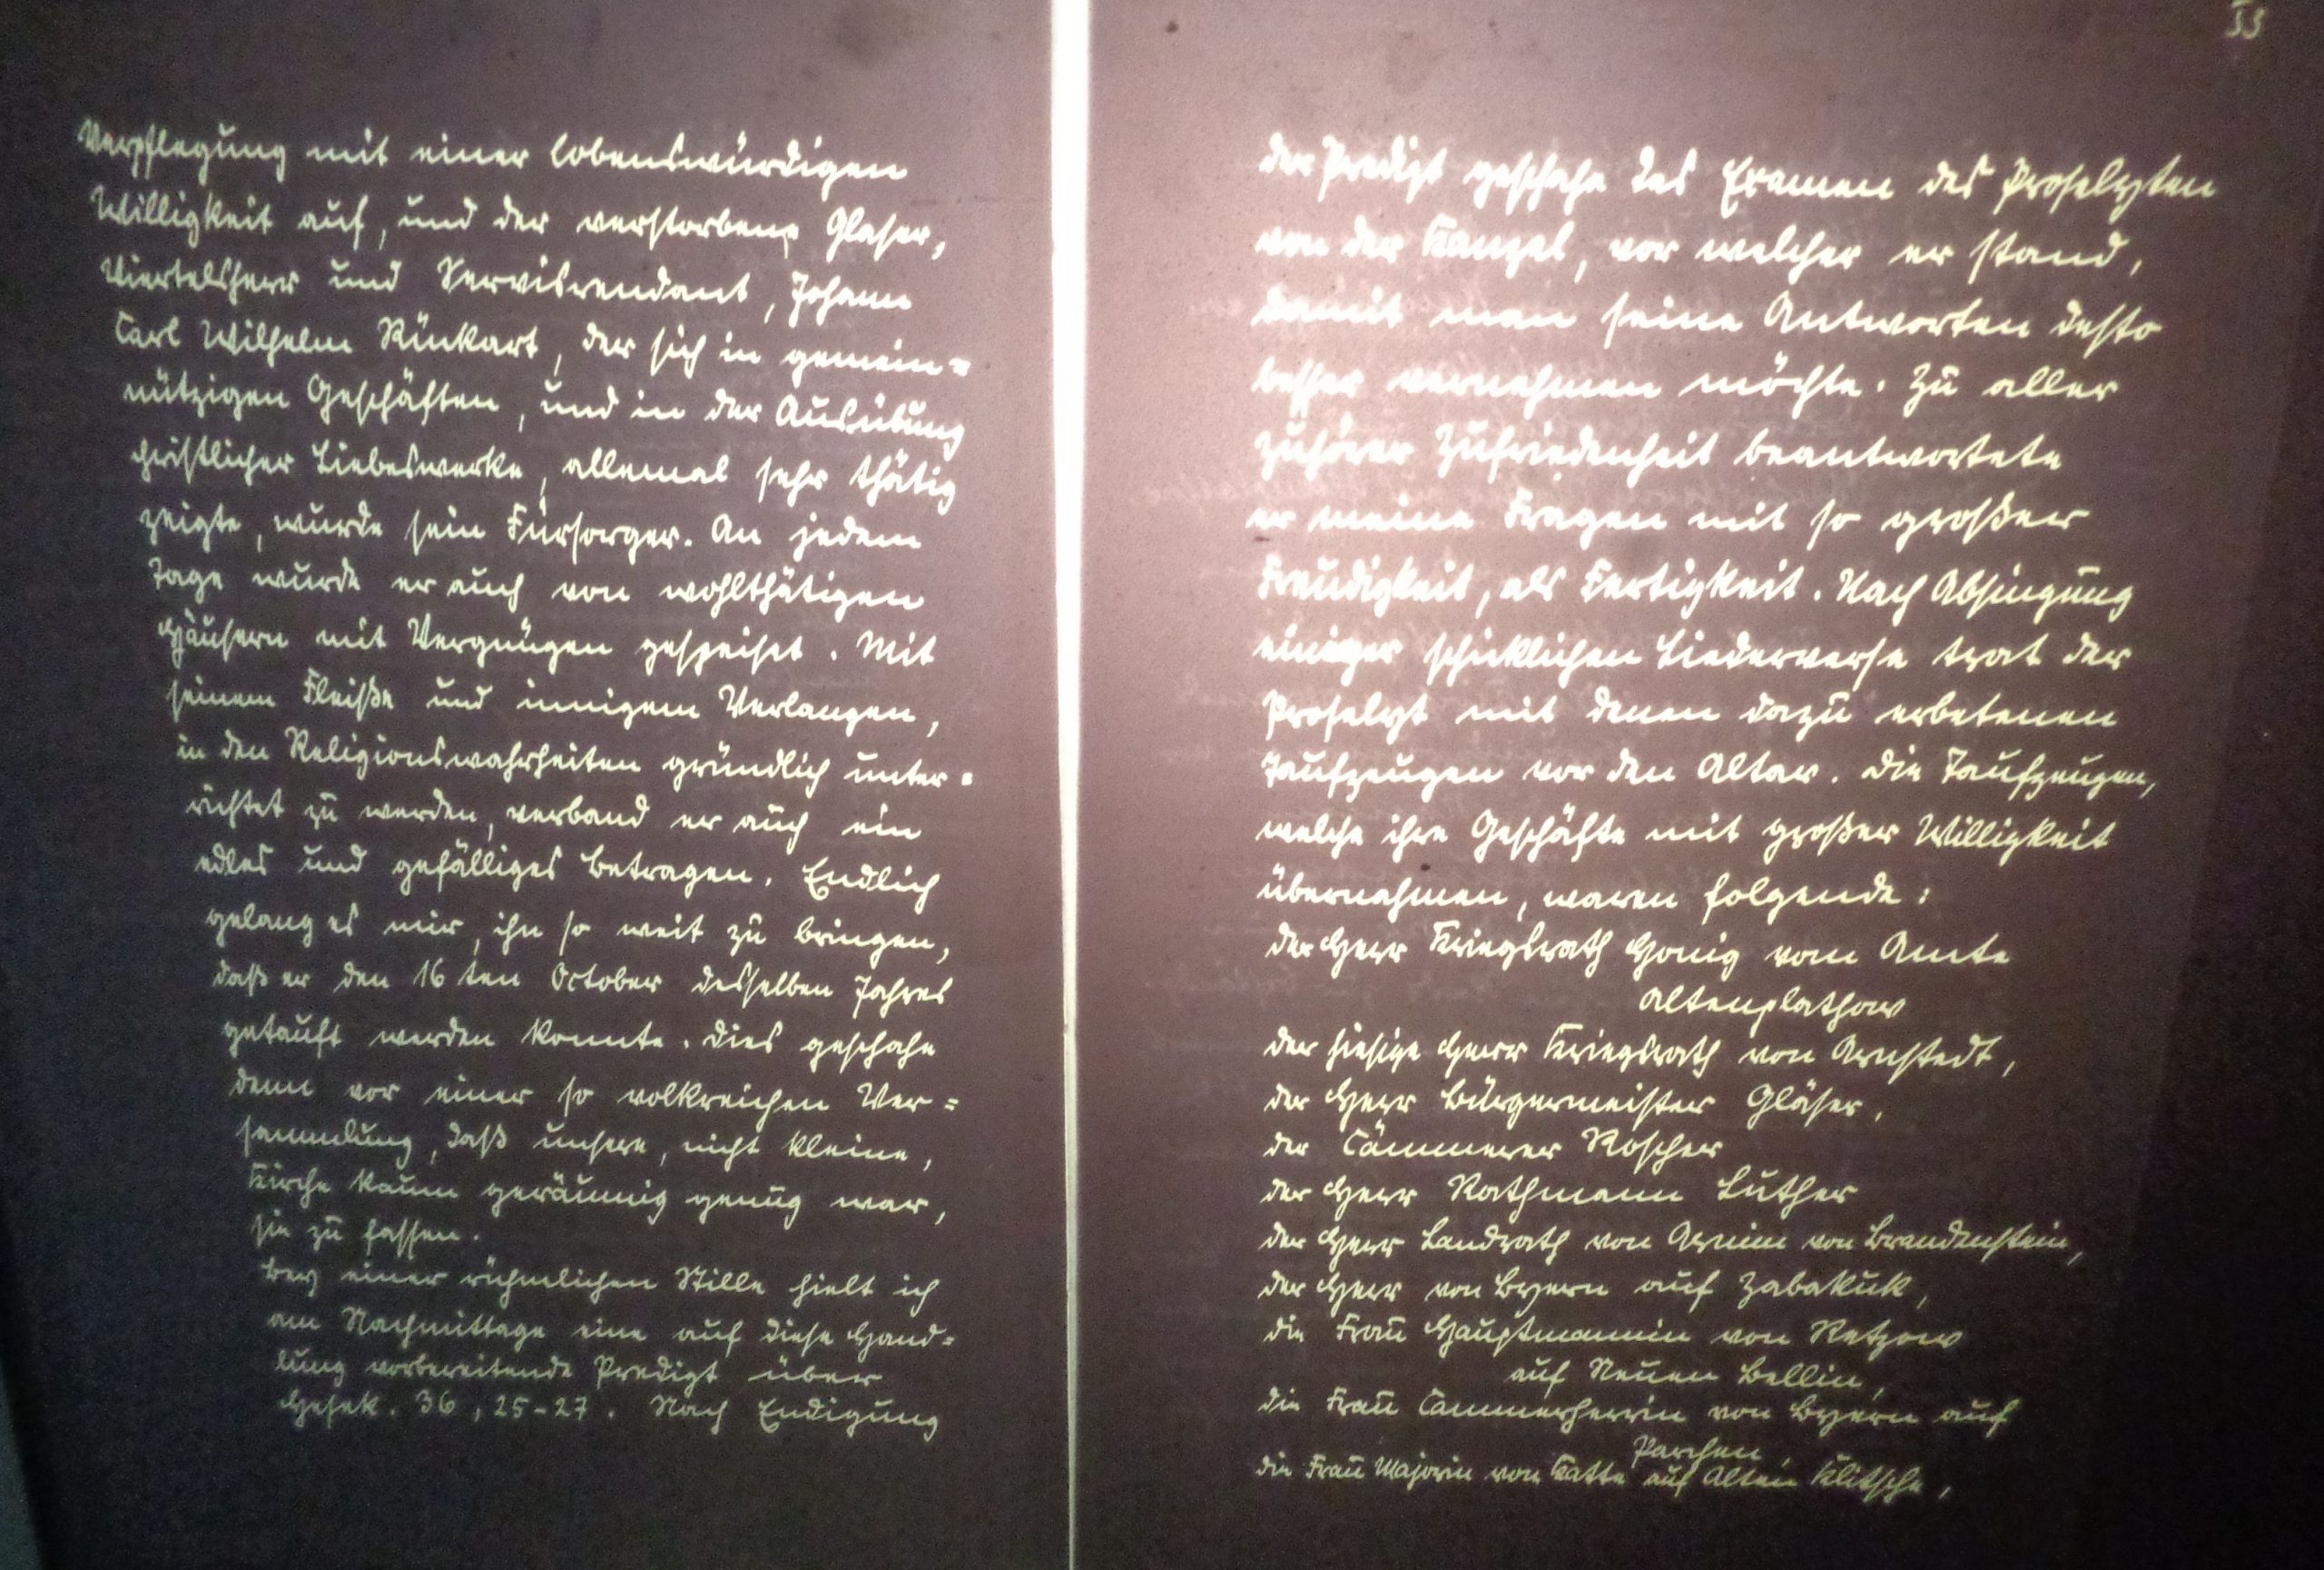 Verpflegung mit einer lobenswürdigen
Willigkeit auf, und der verstorbene Glaser,
Viertelsherr und Servisrendant, Johann
Carl Wilhelm Rünkart, der sich in gemein=
nützigen Geschäften, und in der Ausübung
christlicher Liebeswerke, allemal sehr thätig
zeigte, wurde sein Fürsorger. An jedem
Tage wurde er auch von wohlthätigen
Häusern mit Vergnügen gespeiset. Mit
seinem Fleiße und innigem Verlangen,
in den Religionswahrheiten gründlich unter=
richtet zu werden, verband er auch ein
edles und gefälliges Betragen. Endlich
gelang es mir, ihn so weit zu bringen,
daß er den 16 ten October desselben Jahres
getauft werden konnte. Dies geschahe
denn vor einer so volkreichen Ver=
sammlung, daß unsere, nicht kleine,
Kirche kaum geräumig genug war,
sie zu fassen.
Bey einer rühmlichen Stille hielt ich
am Nachmittage eine auf diese Hand=
lung vorbereitende Predigt über
Hesek. 36, 25-27. Nach Endigung
53
der Predigt geschahe das Examen des Proselyten
von der Kanzel, vor welcher er stand,
damit man seine Antworten desto
besser vernehmen möchte. Zu aller
Zuhörer Zufriedenheit beantwortete
er meine Fragen mit so großer
Freudigkeit, als Fertigkeit. Nach Absingung
einiger schicklichen Liederverse trat der
Proselyt mit denen dazu erbetenen
Taufzeugen vor den Altar. Die Taufzeugen,
welche ihre Geschäfte mit großer Willigkeit
übernahmen, waren folgende:
der Herr Kriegsrath Honig vom Amte
Altenplathow
der hiesige Herr Kriegsrath von Arnstedt,
der Herr Bürgermeister Gläser,
der Cämmerer Roscher
der Herr Rathmann Luther
der Herr Landrath von Arnim von Brandenstein,
der Herr von Byern auf Zabakuk,
die Frau Hauptmannin von Retzow
auf Neuen Bellin,
die Frau Cammerherrin von Byern auf
Parchen,
die Frau Majorin von Katte auf Alten Klitsche,